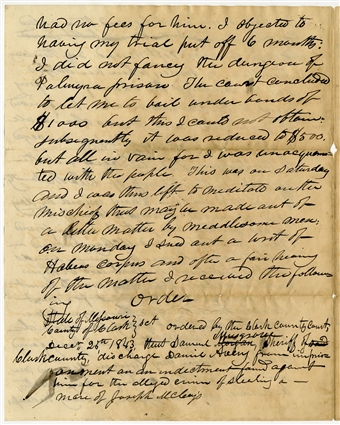 had no fees for him. I objected to
having my trial put off 6 months.
I did not fancy the dungeon of
Palmyra prison The court concluded
to let me to bail under bonds of
$1000 but this I could not obtain
Subsequently it was reduced to $500.
but all in vain for I was unacquain
ted with the people This was on Saturday
and I was thus left to meditate on the
mischief that may be made out of
a little matter by meddlesome men.
On Monday I sued out a writ of
Habeas corpus and after a fair hearing
of the matter I received the follow
ing
order
State of Missouri
County of Clark sct ordered by the Clark County Court
Decer 25th 1843 that Samuel Musgrove Sheriff of said
Clark county, discharge Daniel Avery from impris
onment on an indictment found against
him for the alleged crime of stealing a
mare of Joseph McCoy's